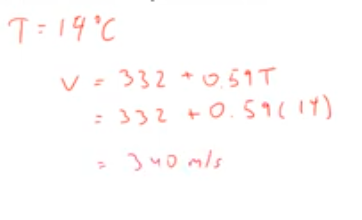 T = 14°C
V = 332 + 0.59T
= 332 + 0.59(14)
= 340 m/s